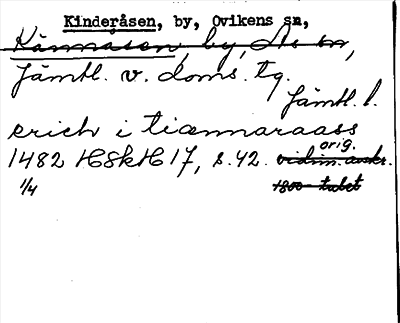 Kinderåsen, by, Ovikens sn,
Kännåsen, by, Ås sn,
Jämtl. v. doms. tg.
Jämtl. l.
erich i tiænnaraass
1482 HSkH 17, s. 42. orig. vidim. avskr.
1/4 1800-talet